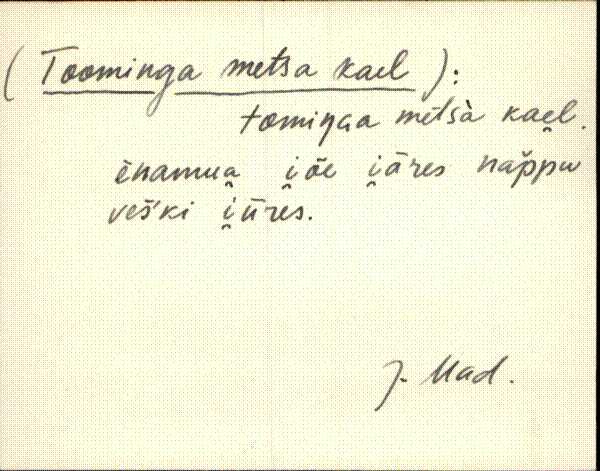 (Toominga metsa kael):
tomiŋaa mètsà kae̯l.
ènamua̯ i̯õe i̯āres nap̆pu
veš'ki i̯üres.
J. Mad.